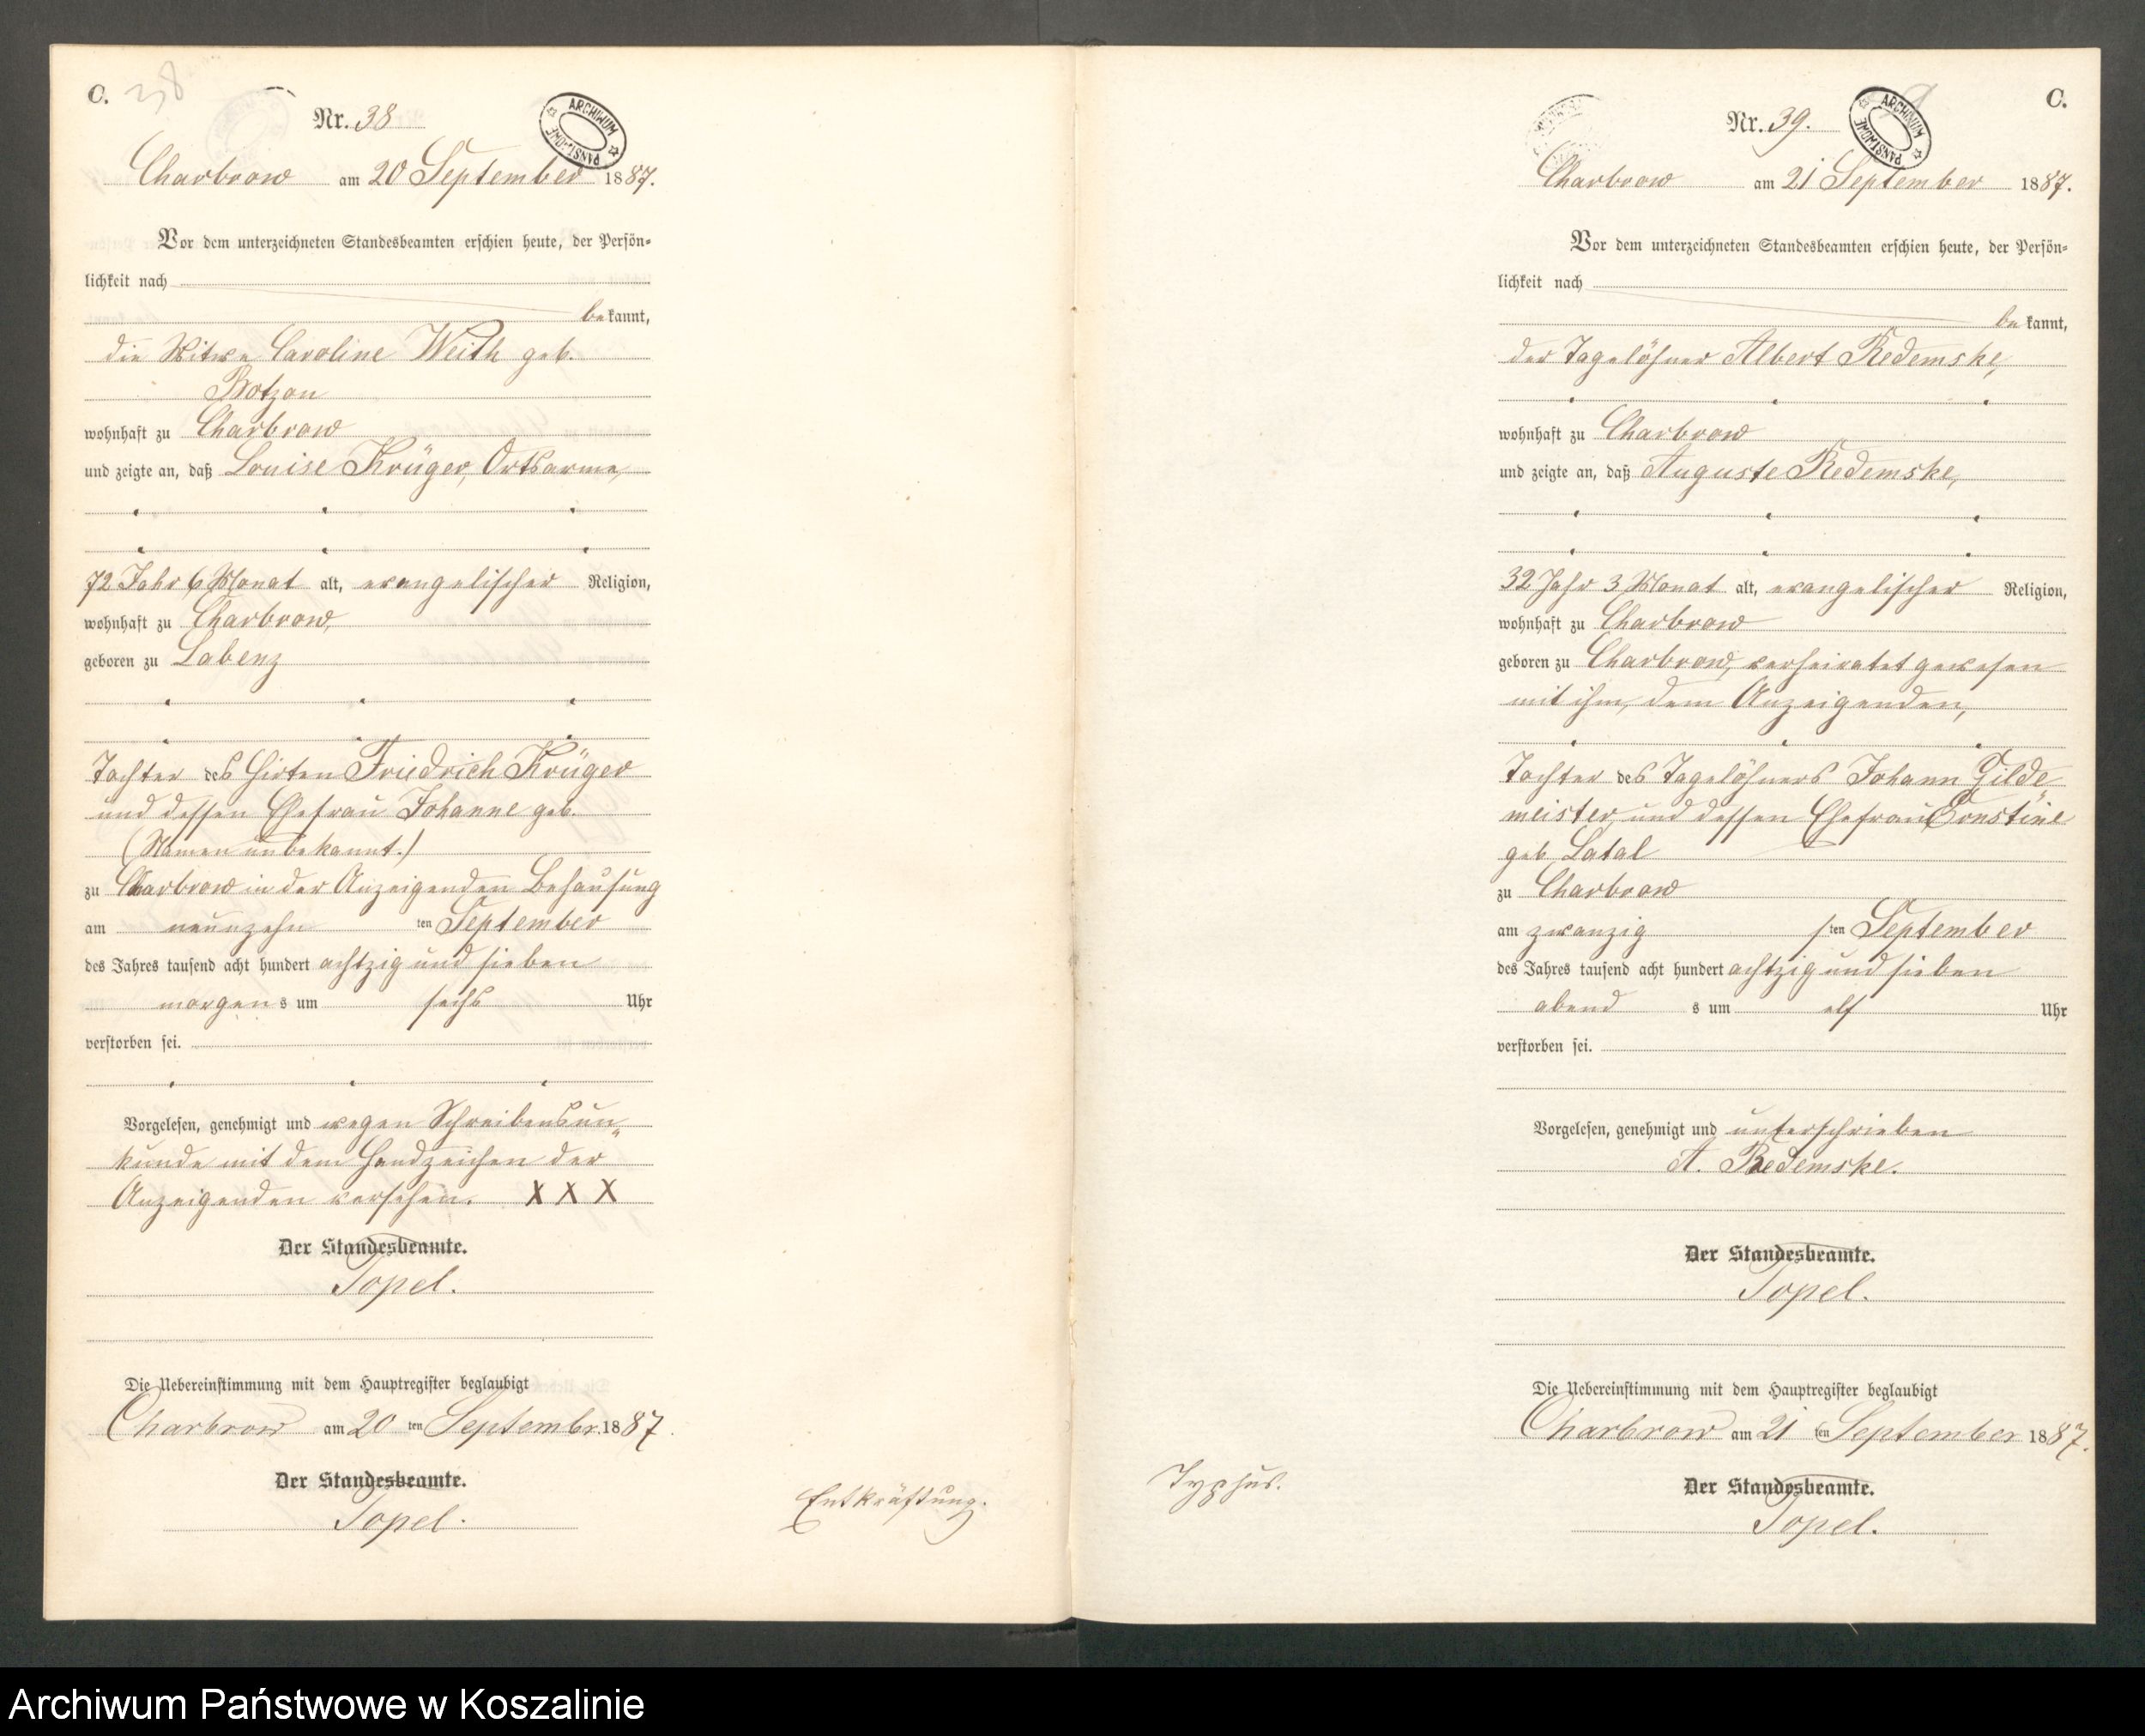 C. 38
Nr. 38
ARCHIWUM PAŃSTWOWE
Charbrow am 20 September 1887.
Vor dem unterzeichneten Standesbeamten erschien heute, der Persön-
lichkeit nach
bekannt,
die Witwe Caroline Weith geb.
Brotzan
wohnhaft zu Charbrow
und zeigte an, daß Louise Krüger, Ortsarme,
72 Jahr 6 Monat alt, evangelischer Religion,
wohnhaft zu Charbrow,
geboren zu Labenz
Tochter des Hirten Friedrich Krüger
und dessen Ehefrau Johanne geb.
(Namen unbekannt.)
zu Charbrow in der Anzeigenden Behausung
am neunzehn ten September
des Jahres tausend acht hundert achtzig und sieben
morgens um sechs Uhr
verstorben sei.
Vorgelesen, genehmigt und wegen Schreibensun-
kunde mit dem Handzeichen der
Anzeigenden versehen. X X X
Der Standesbeamte.
Topel.
Die Uebereinstimmung mit dem Hauptregister beglaubigt
Charbrow am 20 ten Septembr. 1887.
Der Standesbeamte.
Topel.
Entkräftung.
C.
Nr. 39.
ARCHIWUM PAŃSTWOWE
Charbrow am 21 September 1887.
Vor dem unterzeichneten Standesbeamten erschien heute, der Persön-
lichkeit nach
bekannt,
der Tagelöhner Albert Redemske,
wohnhaft zu Charbrow
und zeigte an, daß Auguste Redemske,
32 Jahr 3 Monat alt, evangelischer Religion,
wohnhaft zu Charbrow
geboren zu Charbrow, verheiratet gewesen
mit ihm, dem Anzeigenden,
Tochter des Tagelöhners Johann Gilde-
meister und dessen Ehefrau Ernstine
geb. Latal
zu Charbrow
am zwanzigsten September
des Jahres tausend acht hundert achtzig und sieben
abends um elf Uhr
verstorben sei.
Vorgelesen, genehmigt und unterschrieben
A. Redemske.
Der Standesbeamte.
Topel.
Die Uebereinstimmung mit dem Hauptregister beglaubigt
Charbrow am 21 ten September 1887.
Der Standesbeamte.
Topel.
Typhus.
Archiwum Państwowe w Koszalinie